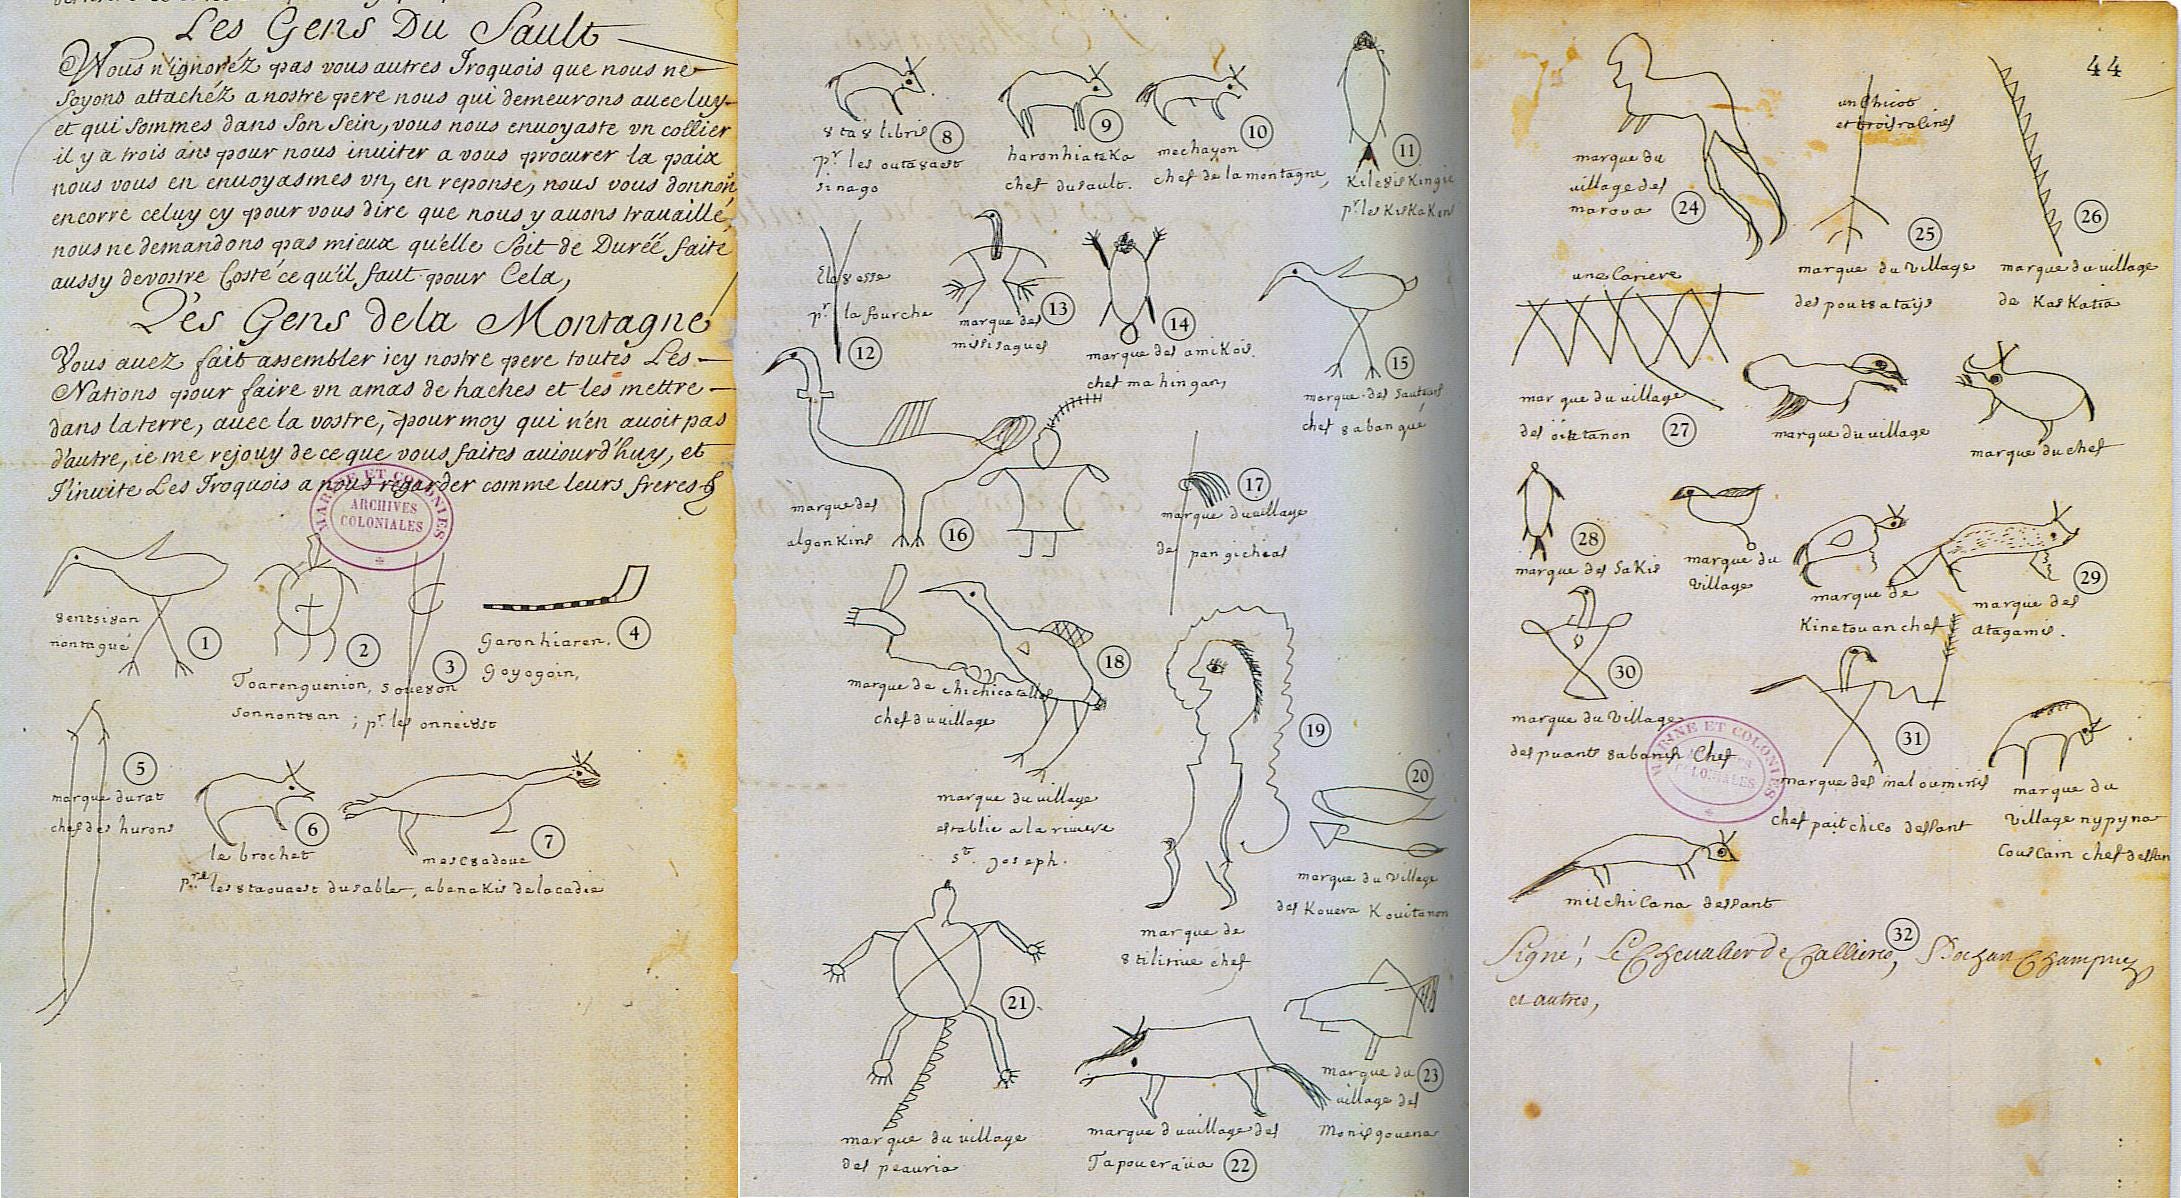 Les Gens Du Sault
Vous n'ignoréz pas vous autres Iroquois que nous ne
soyons attachéz a nostre pere nous qui demeurons auec luy
et qui sommes dans son sein, vous nous enuoyaste vn collier
il y a trois ans pour nous inuiter a vous procurer la paix
nous vous en enuoyasmes vn, en reponse, nous vous donnons
encorre celuy cy pour vous dire que nous y auons trauaillé,
nous ne demandons pas mieux qu'elle soit de Duréé faite
aussy de vostre Costé ce qu'il faut pour Cela,
Les Gens de la Montagne
Vous auez fait assembler icy nostre pere toutes Les
Nations pour faire vn amas de haches et les mettre
dans la terre, auec la vostre, pour moy qui n'en auoit pas
d'autre, ie me rejouy de ce que vous faites auiourd'huy, et
J'inuite Les Iroquois a nous regarder comme leurs freres
MARINE ET COLONIES
ARCHIVES
COLONIALES
8entsi8an
nontagué
1
2
Toarenguenion,
sonnont8an
3
so8e8on
; pr. les onnei8st
garonhiaren.
goyogoin,
4
5
marque du rat
chef des hurons
6
le brochet
pr. les 8ta8ouaest du sable,
7
mesc8adoue
abenakis de lacadie
8ta8libris
8
pr. les outa8aest
sinago
9
haronhiateka
chef du sault.
10
mechayon
chef de la montagne,
11
Kile8isKingie
pr. les KisKaKons
Ela8esse
pr. la fourche
12
13
marque des
missisagues
14
marque des amiKois.
chef mahingan,
15
marque des sauteurs
chef 8abangué
marque des
algonKins
16
17
marque du village
de pangicheas
18
marque de chichicatalle
chef du village
marque du village
establie a la riuiere
St. Joseph.
19
marque de
8tilirine chef
20
marque du Village
des Kouera Kouitanon
21
marque du village
des peauria
marque du village des
Tapouera͏̈ua
22
marque du
23
village des
Monisgouena
44
marque du
village des
marova
24
un chicot
et trois racines
25
marque du Village
des pouteatays
26
marque du village
de KasKatia
une Cariere
marque du village
des
27
marque du village
marque du chef
28
marque des SaKis
marque du
Village
marque de
Kinetouan chef
29
marque des
atagamis.
30
marque du Village
des puants 8abanch Chef
MARINE ET COLONIES
COLONIALES
31
marque des maloumins
chef paitchico dessant
marque du
Village nypyna
Couscain chef dessan
milchilana dessant
32
Signé; Le Chevalier de Callieres, Bochart Champigny
et autres,